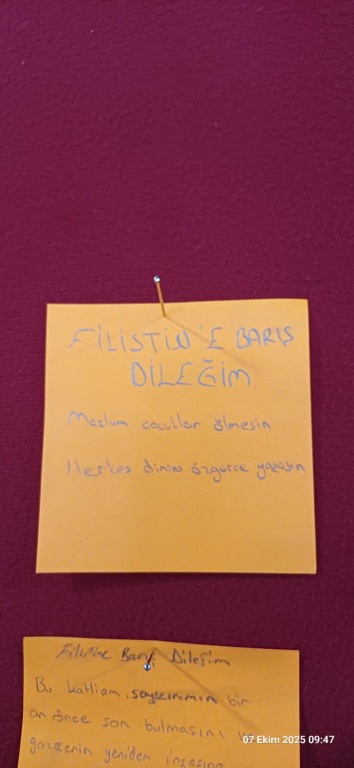 FİLİSTİN'E BARIŞ
DİLEĞİM
Mazlum çocuklar ölmesin
Herkes dinini özgürce yaşasın
Filistine Barış Dileğim
Bu katliam, soykırımın bir
an önce son bulmasını ve
gazzenin yeniden inşasına
07 Ekim 2025 09:47